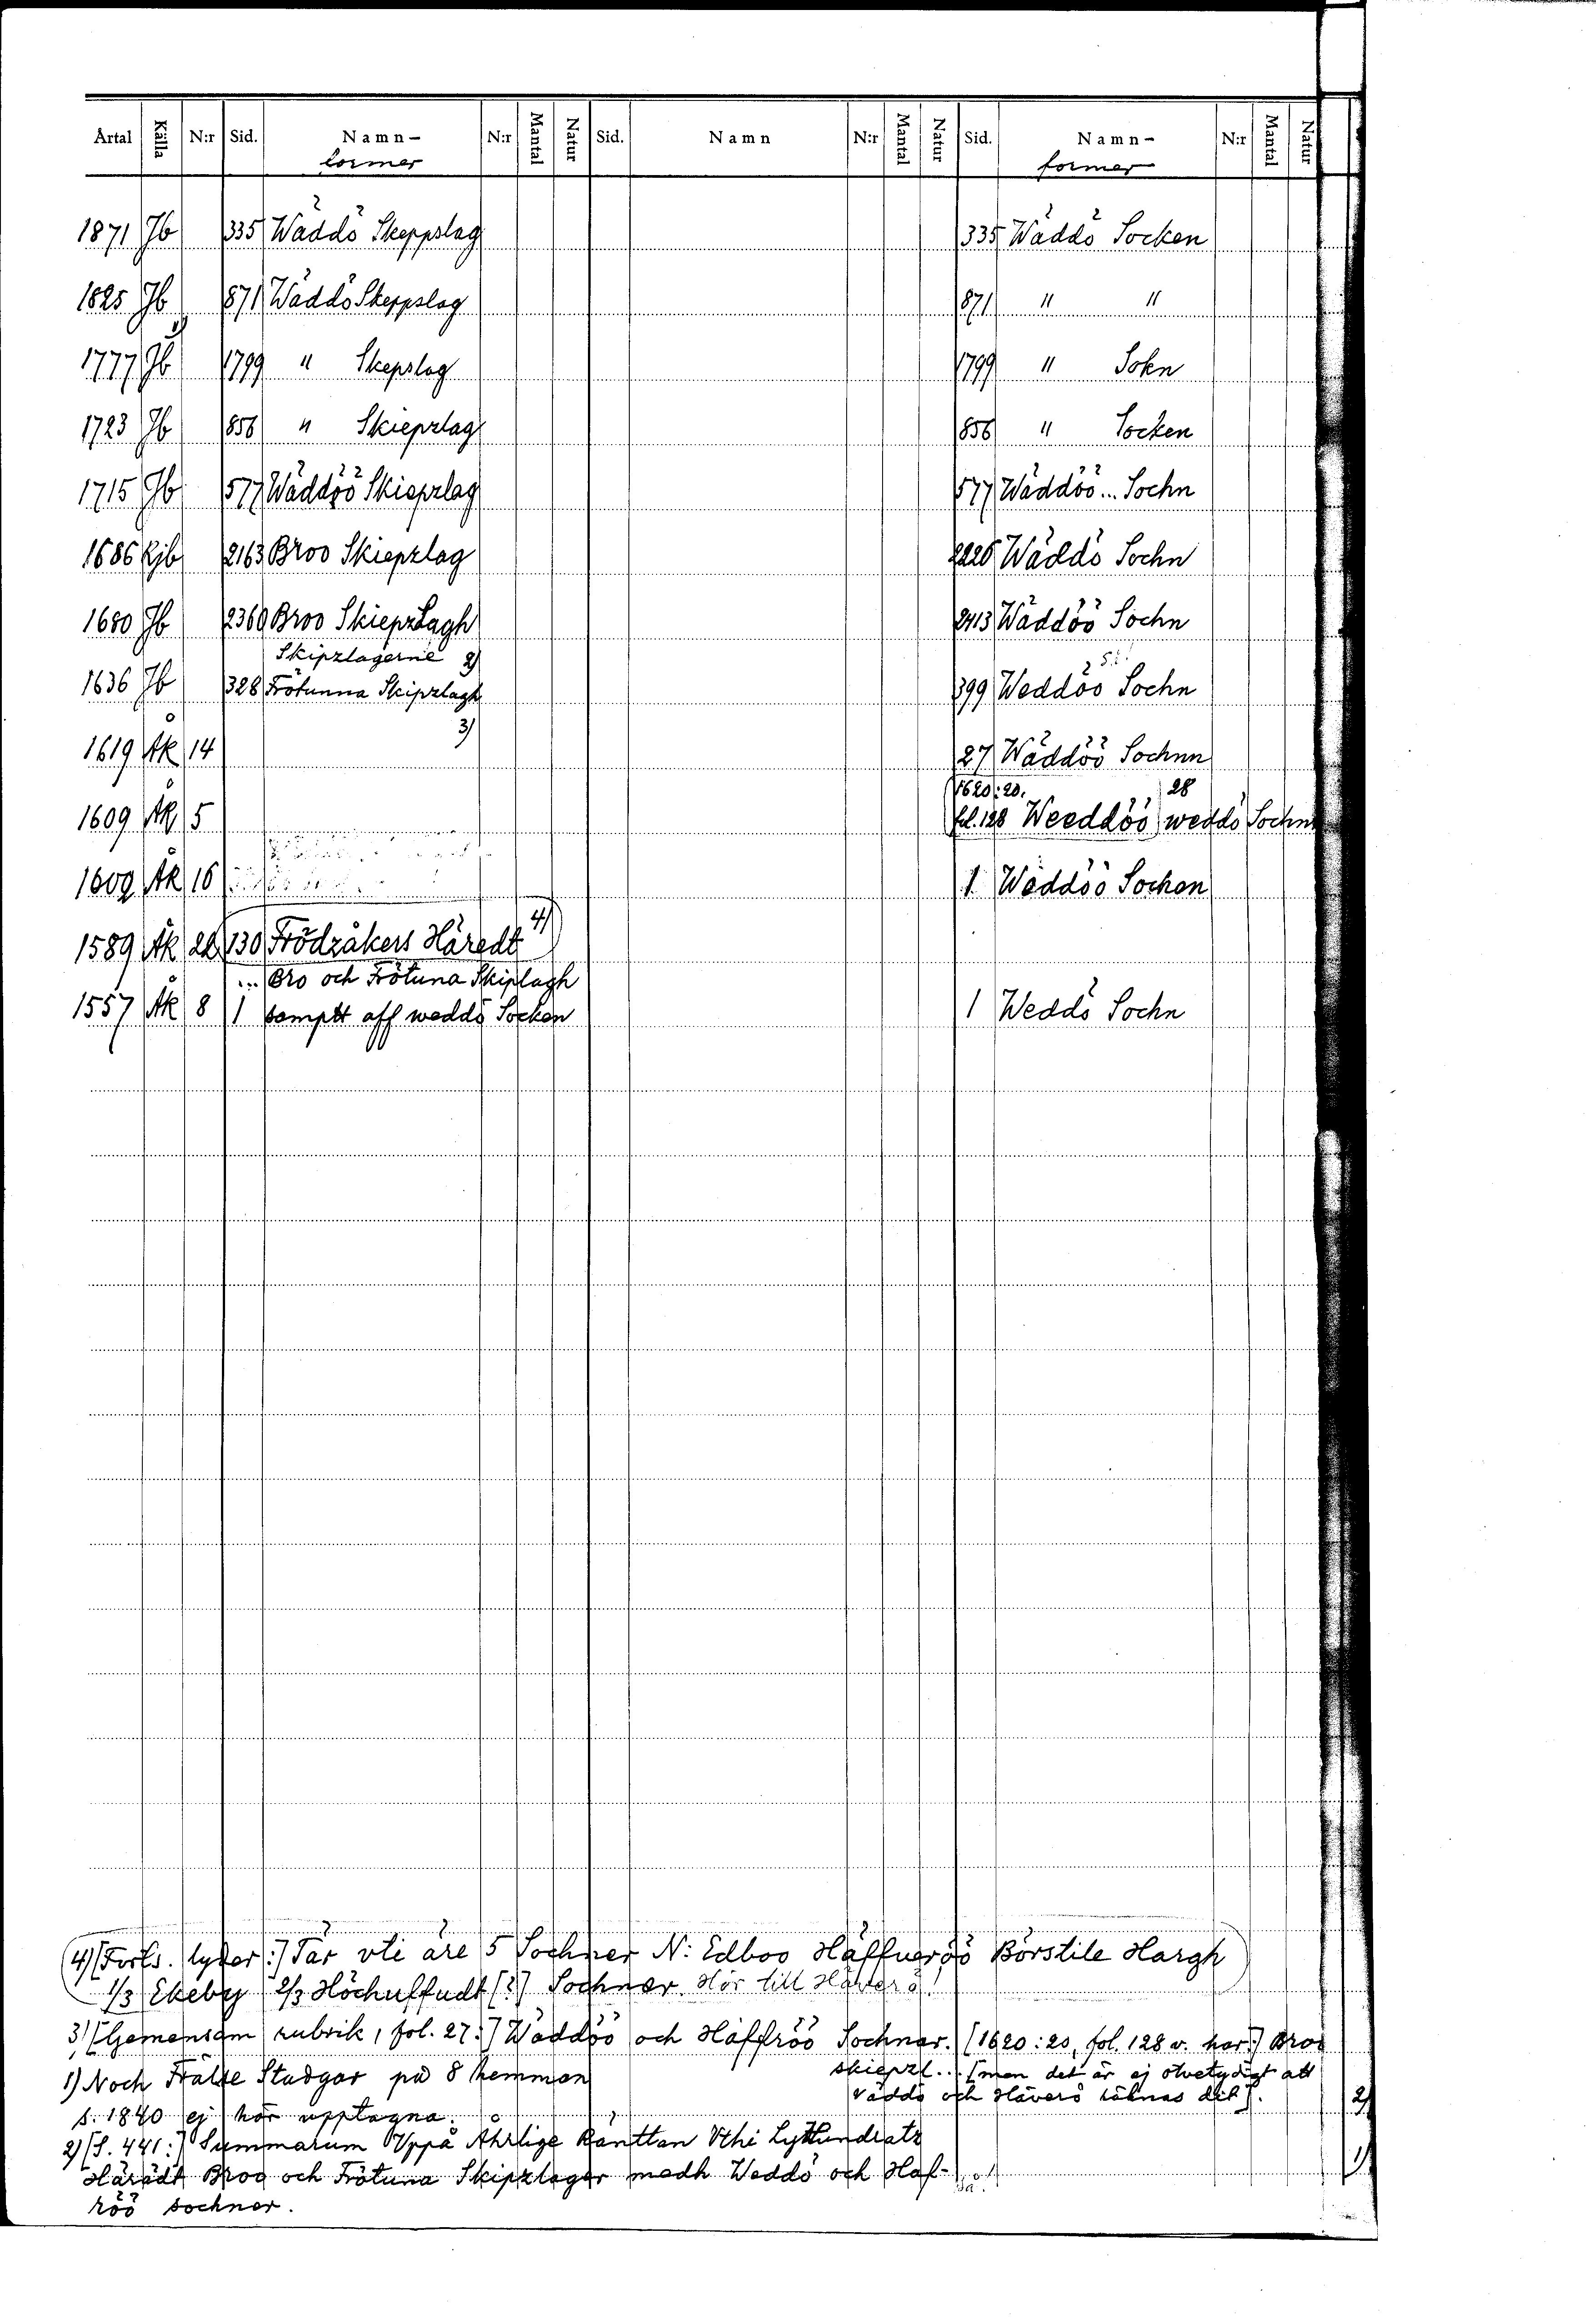 Årtal Källa N:r Sid. Namn- N:r Mantal Natur Sid. Namn N:r Mantal Natur Sid. Namn- N:r Mantal Natur
former former
1871 Jb 335 Wäddö Skeppslag 335 Wäddö Socken
1825 Jb 871 Wäddö Skeppslag 871 " "
1)
1777 Jb 1799 " Skepslag 1799 " Sokn
1723 Jb 856 " Skiepzlag 856 " Socken
1715 Jb 577 Wäddöö Skiepzlag 577 Wäddöö... Sochn
1686 Kjb 2163 Broo Skiepzlag 2220 Wäddö Sochn
1680 Jb 2360 Broo SkiepzLagh 2413 Wäddöö Sochn
Skipzlagerne 2)
1636 Jb 328 Frötunna Skipzlagh 399 Weddöö Sochn
3)
1619 Åk 14 27 Wäddöö Sochnn
1620:20. 28
1609 Åk 5 fol. 128 Weeddöö weddö Sochn
1609 Åk 16 1 Wäddöö Sochen
1589 Åk 22 130 Frödzåkers Häredt 4)
... Bro och Frötuna Skiplagh
1557 Åk 8 1 samptt aff weddö Socken 1 Weddö Sochn
4) [Forts. lyder:] Tär vti äre 5 Sochner N: Edboo Häffueröö Börstile Hargh
1/3 Ekeby 2/3 Höchuffudt [?] Sochner. Hör till Häverö!
3) [Gemensam rubrik, fol. 27:] Wäddöö och Häffröö Sochnar. [1620:20, fol. 128 v. har:] Broo
skiepzl... [men det är ej otvetydigt att
Väddö och Häverö räknas dit].
1) Noch Frälse Stadgar på 8 hemman
s. 1840 ej här upptagna.
2) [S. 441:] Summarum Vppå Åhrlige Ränttan Vthi Lythundratz
Härädt Broo och Frötuna Skipzlager medh Weddö och Haf-
röö sochner.
2)
1)